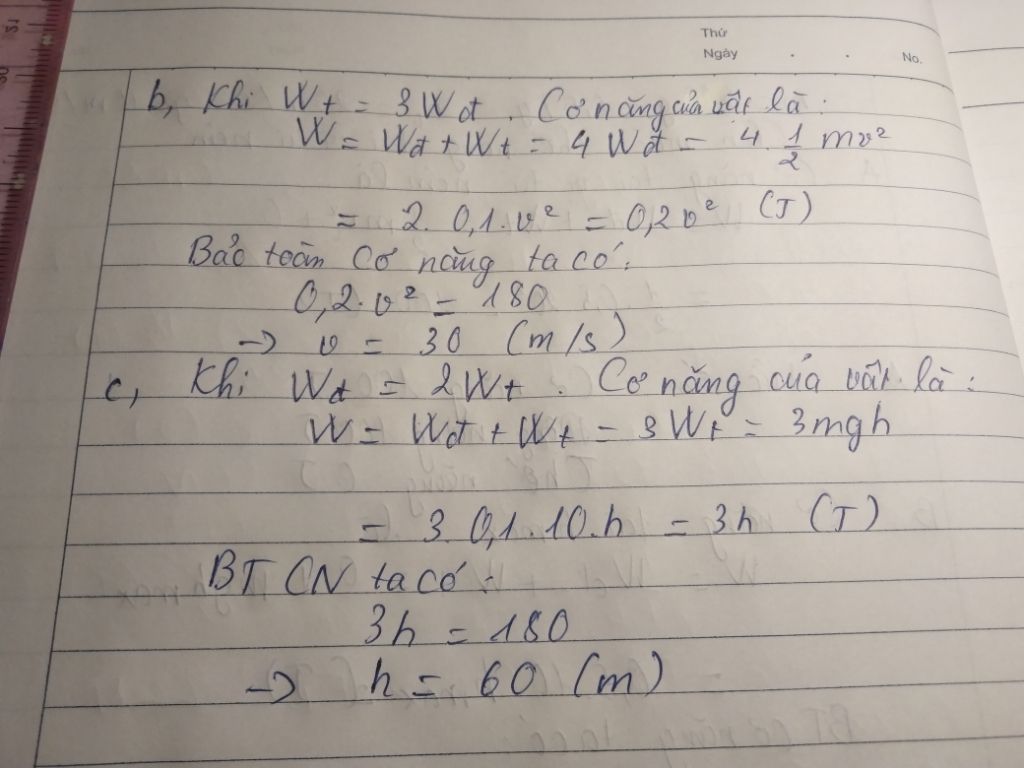 Thứ
Ngày . . No.
b, Khi Wt = 3Wđ. Cơ năng của vật là:
W = Wđ + Wt = 4Wđ = 4. 1/2 mv²
= 2. 0,1. v² = 0,2v² (J)
Bảo toàn cơ năng ta có:
0,2. v² = 180
→ v = 30 (m/s)
c, Khi Wđ = 2Wt. Cơ năng của vật là:
W = Wđ + Wt = 3Wt = 3mgh
= 3. 0,1. 10. h = 3h (J)
BT CN ta có:
3h = 180
→ h = 60 (m)